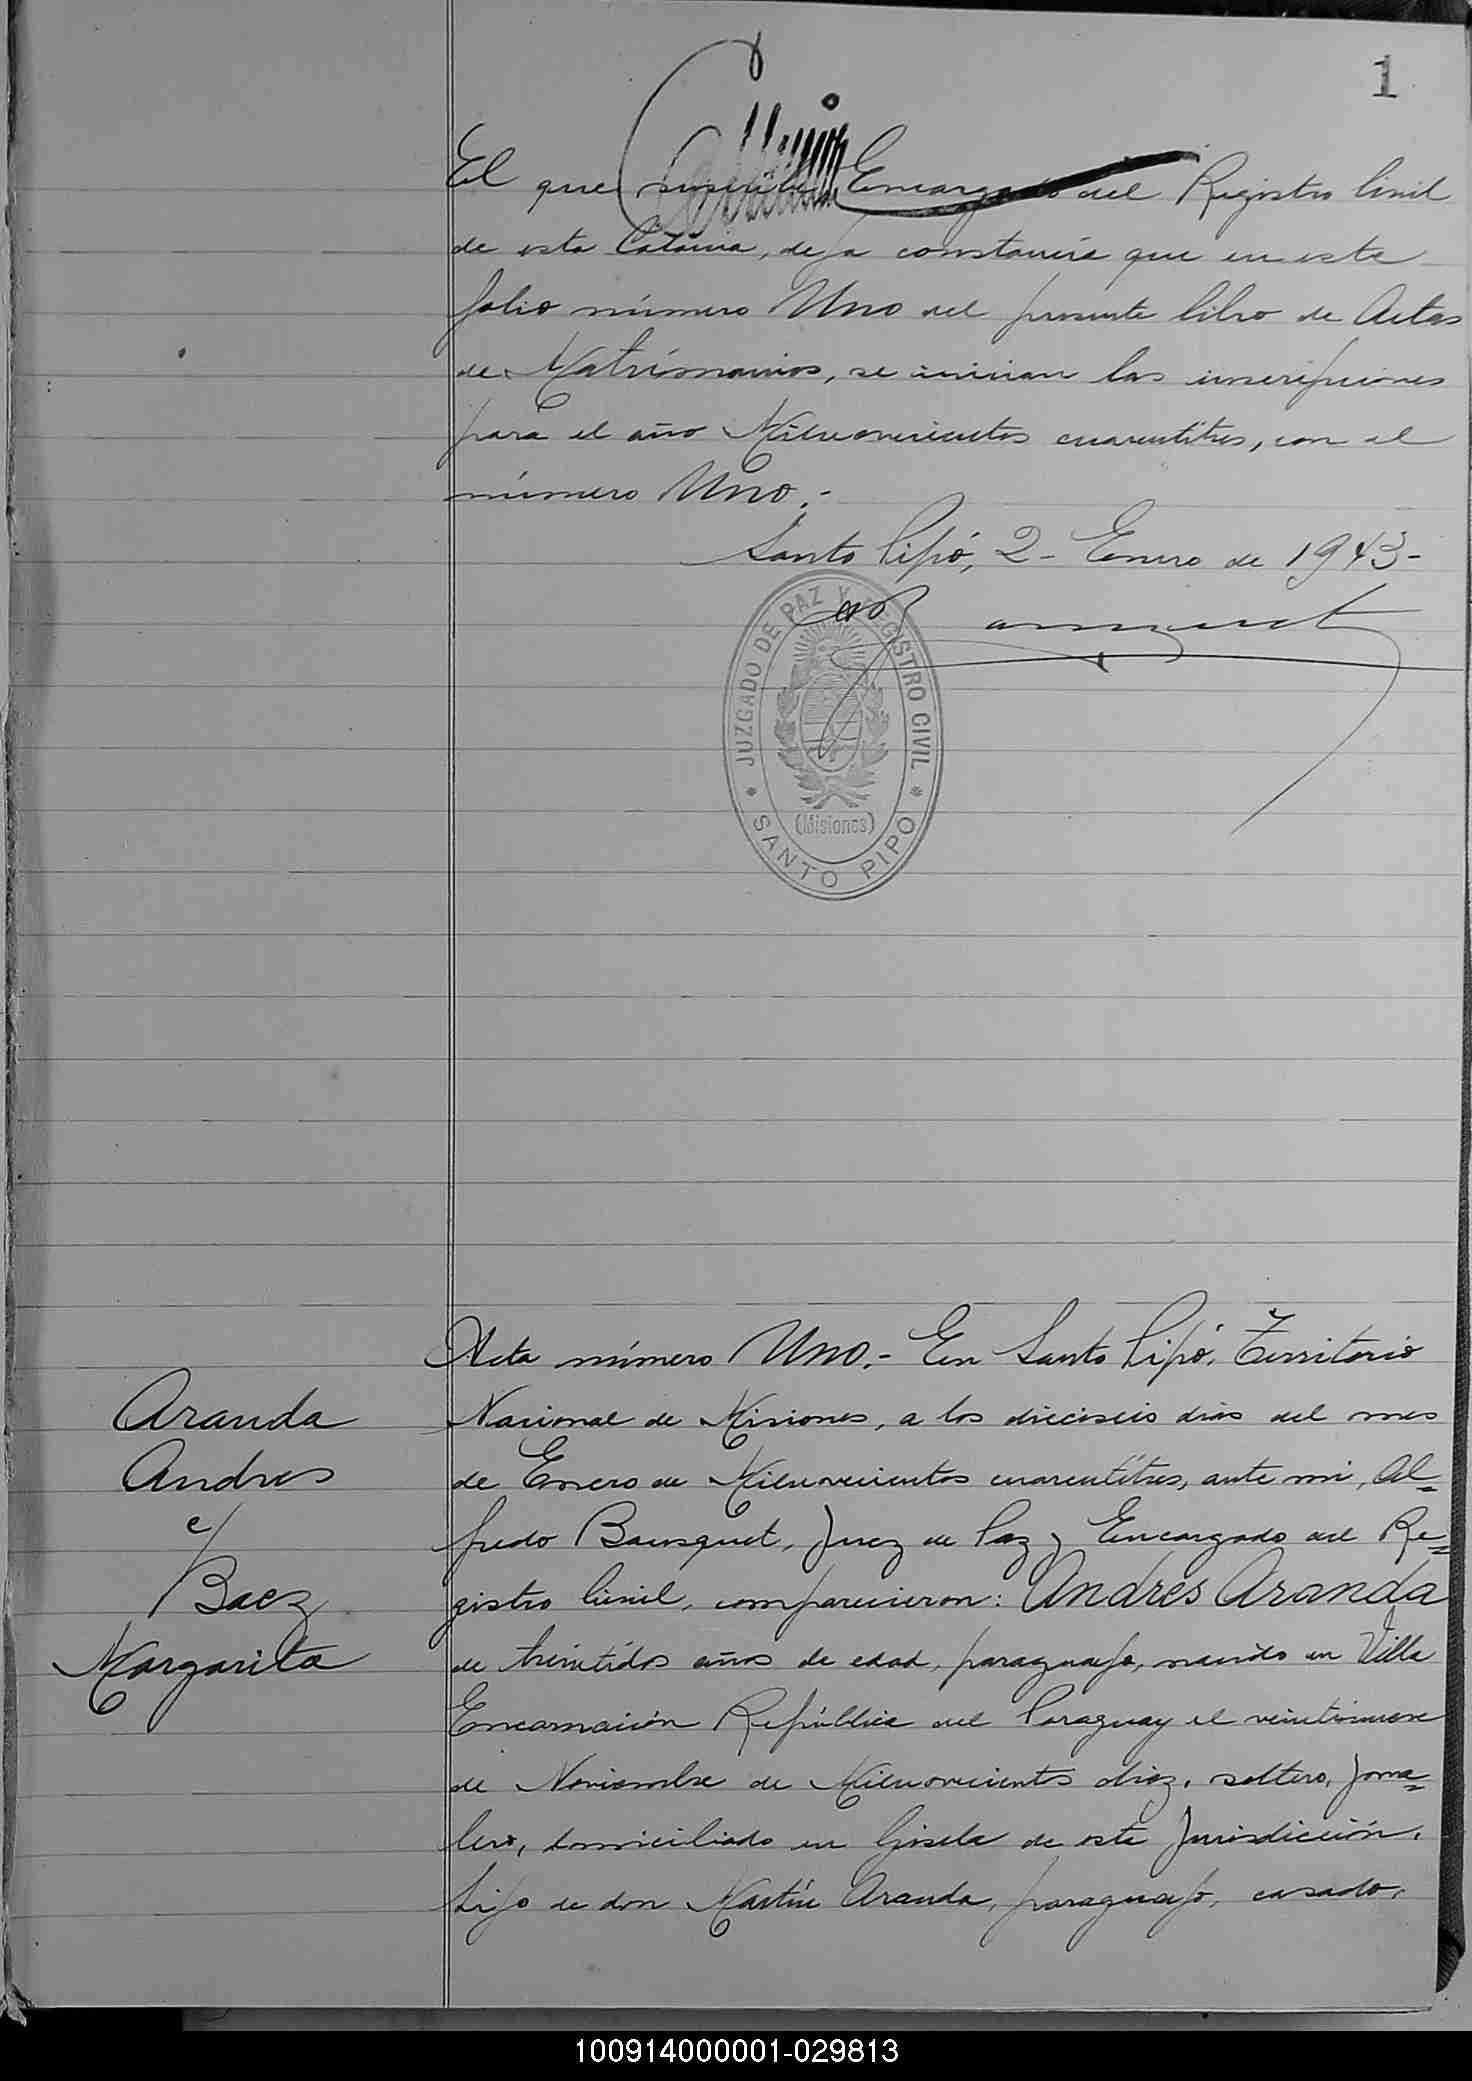 1
El que suscribe Encargado del Registro Civil
de esta Colonia, deja constancia que en este
folio número Uno del presente libro de Actas
de Matrimonios, se inician las inscripciones
para el año Milnovecientos cuarentitres, con el
número Uno.-
Santo Pipó, 2- Enero de 1943-
JUZGADO DE PAZ Y REGISTRO CIVIL
(Misiones)
* SANTO PIPO *
Acta número Uno.- En Santo Pipó, Territorio
Aranda
Nacional de Misiones, a los dieciseis dias del mes
Andres
de Enero de Milnovecientos cuarentitres, ante mi, Al=
c/
fredo Bousquet, Juez de Paz y Encargado del Re=
Baez
gistro Civil, comparecieron: Andres Aranda
Margarita
de treintidos años de edad, paraguayo, nacido en Villa
Encarnación República del Paraguay el veintinueve
de Noviembre de Milnovecientos diez, soltero, jorna=
lero, domiciliado en Gisela de esta Jurisdicción,
hijo de don Martín Aranda, paraguayo, casado,
100914000001-029813